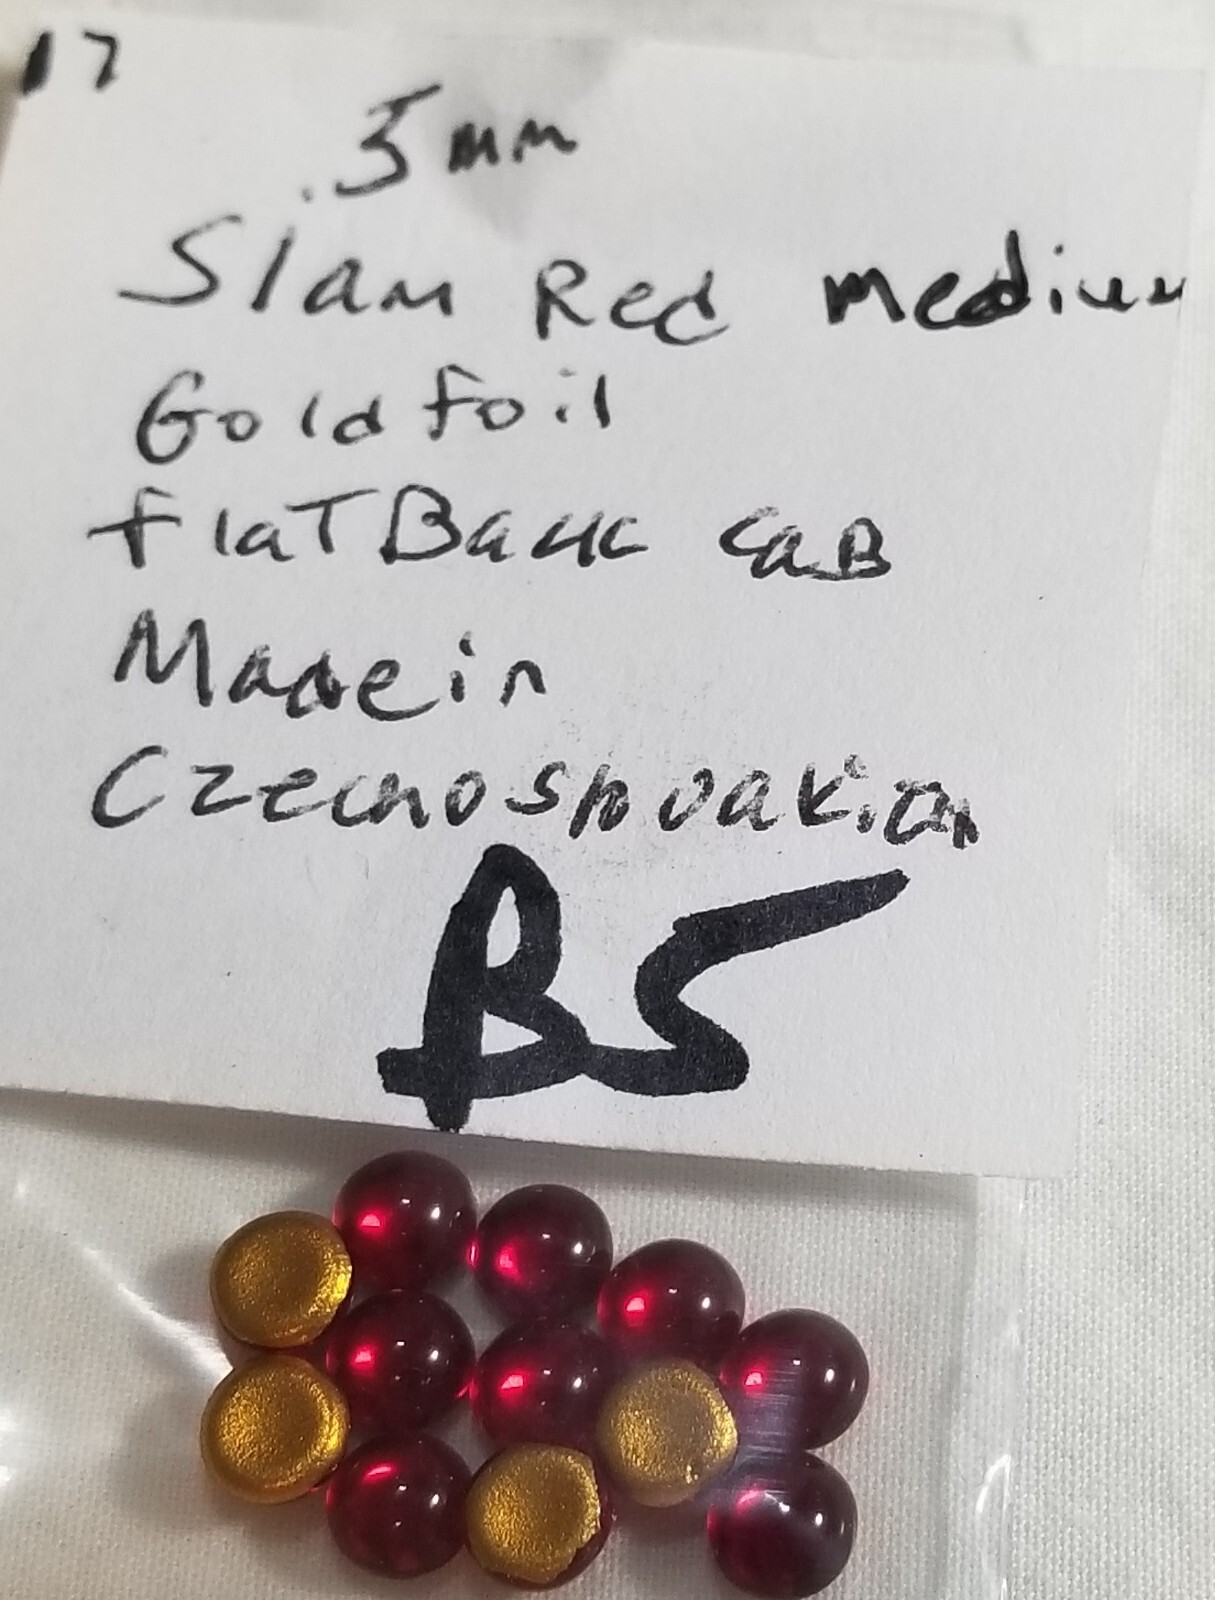 17
.5mm
Siam Red medium
Gold foil
flaT Back caB
Made in
Czechoslovakian
B5